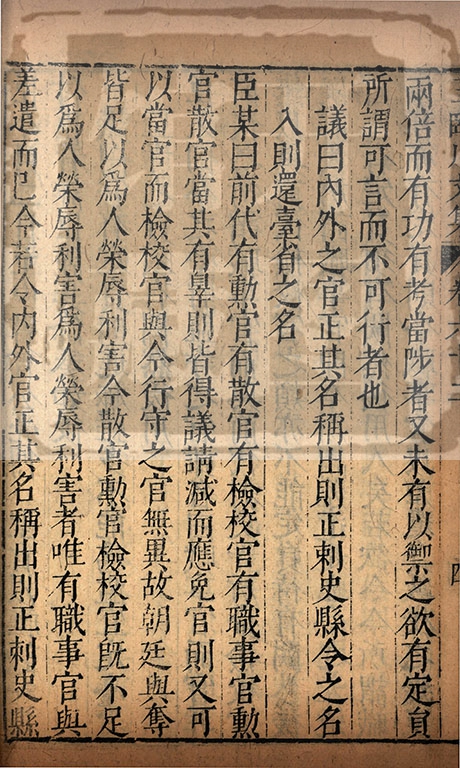 兩倍而有功有考當陟者又未有以禦之欲有定員
所謂可言而不可行者也
議曰內外之官正其名稱出則正刺史縣令之名
入則還臺省之名
臣某曰前代有勳官有散官有檢校官有職事官勳
官散官當其有辠則皆得議請減而應免官則又可
以當官而檢校官與今行守之官無異故朝廷與奪
皆足以爲人榮辱利害今散官勳官檢校官旣不足
以爲人榮辱利害爲人榮辱利害者唯有職事官與
差遣而已今若令內外官正其名稱出則正刺史縣